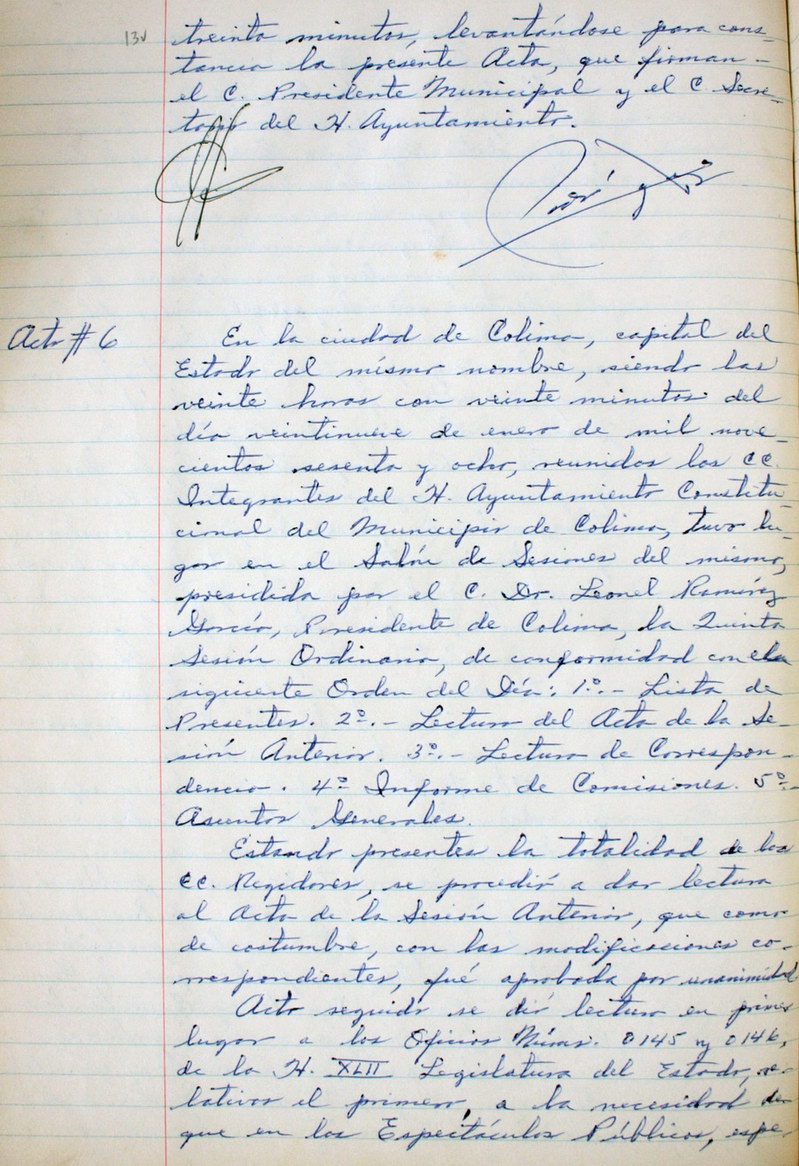 13v
treinta minutos, levantándose para cons-
tancia la presente Acta, que firman -
el C. Presidente Municipal y el C. Secre-
tario del H. Ayuntamiento.
Acta # 6
En la ciudad de Colima, capital del
Estado del mismo nombre, siendo las
veinte horas con veinte minutos del
día veintinueve de enero de mil nove-
cientos sesenta y ocho, reunidos los CC.
Integrantes del H. Ayuntamiento Constitu-
cional del Municipio de Colima, tuvo lu-
gar en el Salón de Sesiones del mismo,
presidida por el C. Dr. Leonel Ramírez
García, Presidente de Colima, la Quinta
Sesión Ordinaria, de conformidad con el
siguiente Orden del Día: 1º.- Lista de
Presentes. 2º.- Lectura del Acta de la Se-
sión Anterior. 3º.- Lectura de Correspon-
dencia. 4º Informe de Comisiones. 5º.-
Asuntos Generales.
Estando presentes la totalidad de los
CC. Regidores, se procedió a dar lectura
al Acta de la Sesión Anterior, que como
de costumbre, con las modificaciones co-
rrespondientes, fué aprobada por unanimidad
Acto seguido se dió lectura en primer
lugar a los Oficios Núms. 0145 y 0146,
de la H. XLII Legislatura del Estado, re-
lativos el primero, a la necesidad de
que en los Espectáculos Públicos, espe